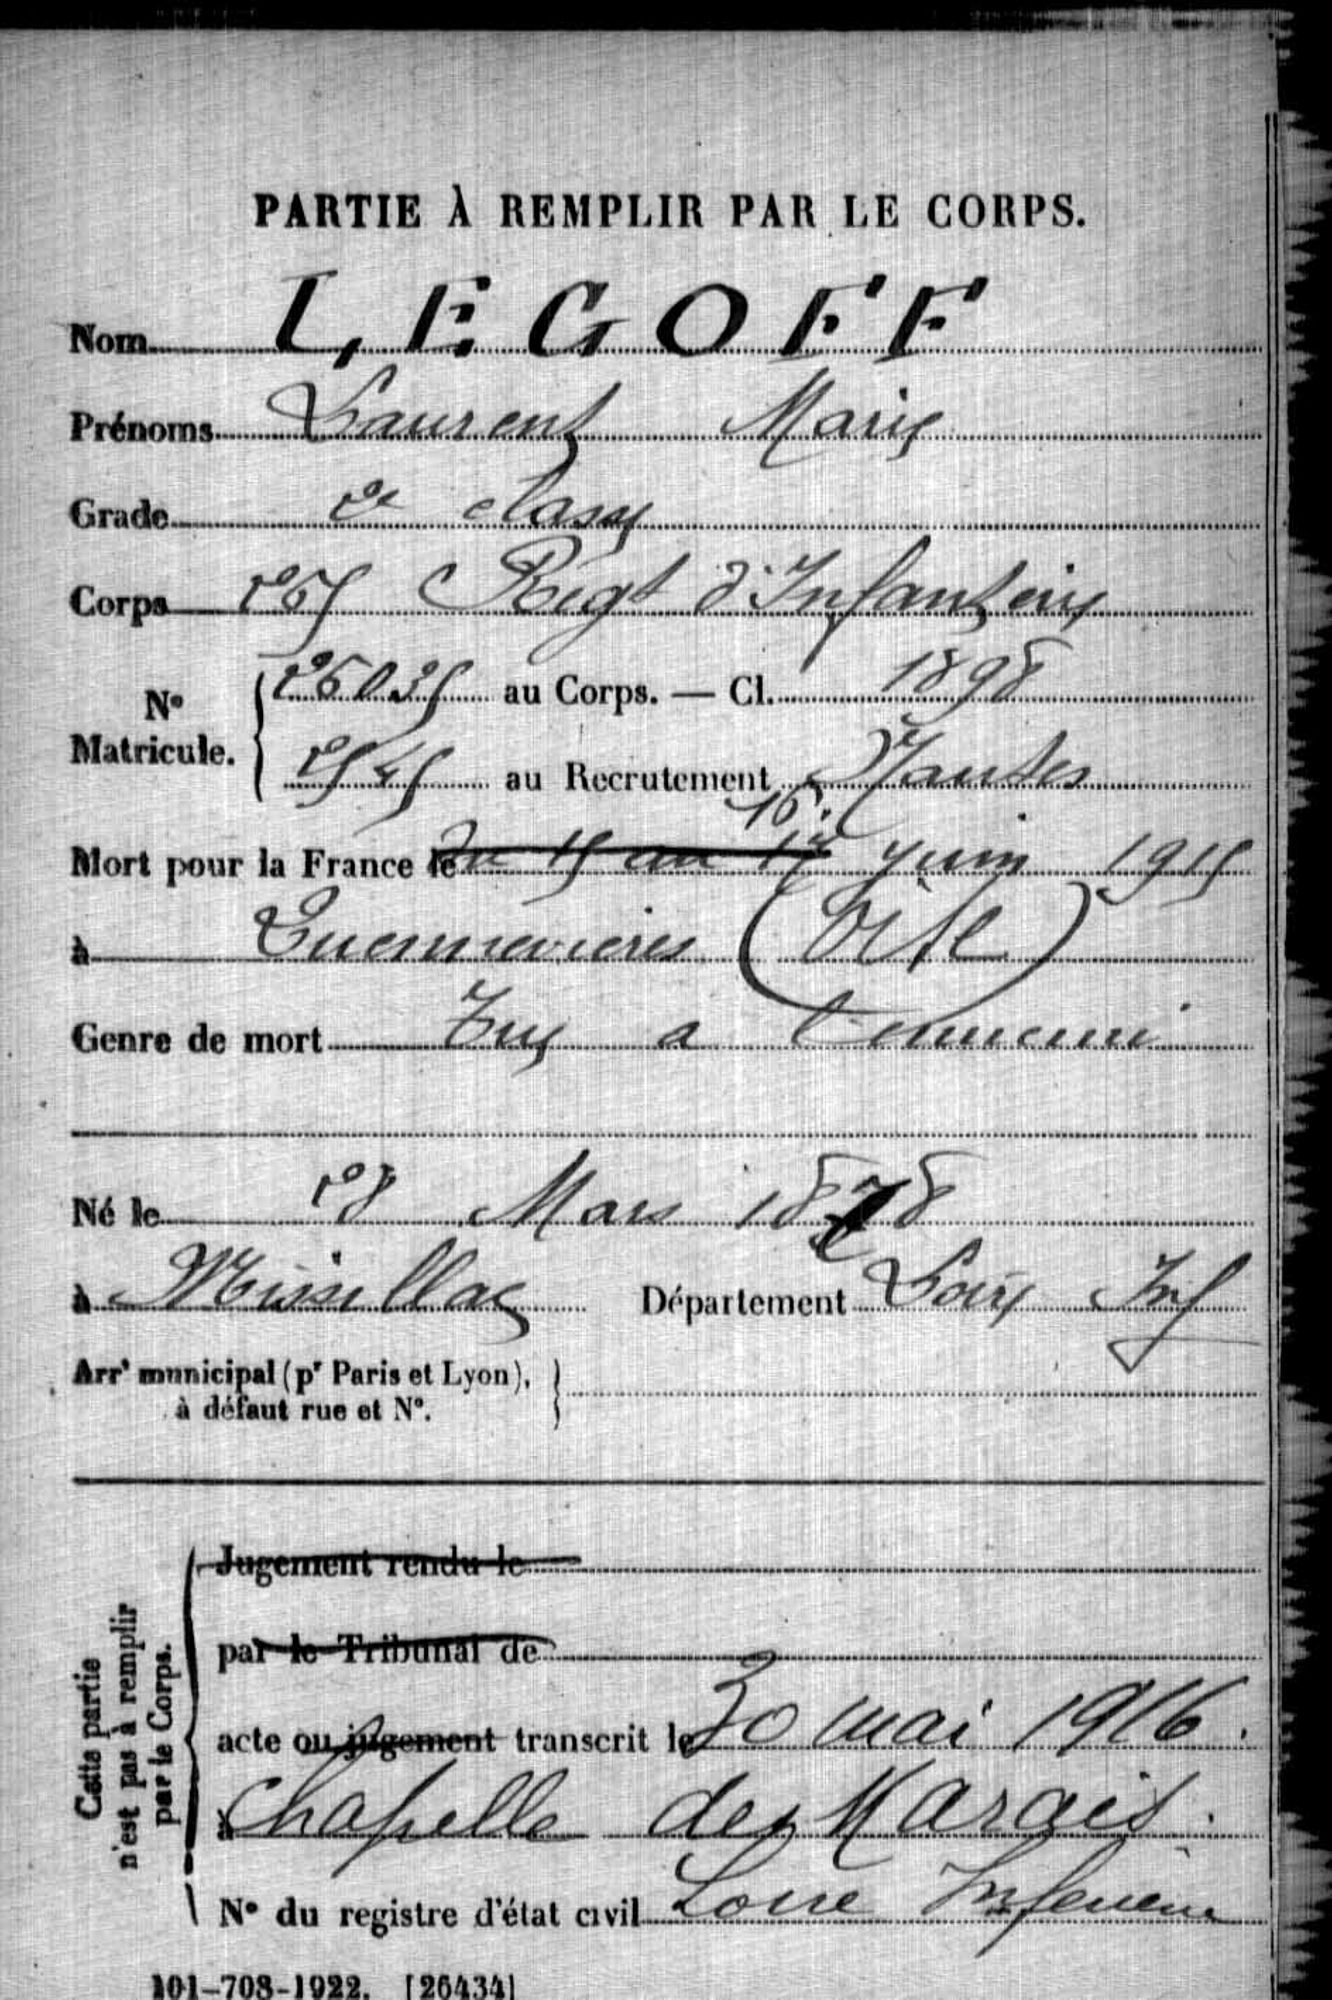 PARTIE À REMPLIR PAR LE CORPS.
Nom LEGOFF
Prénoms Laurent Marie
Grade 2e classe
Corps 265 Regt d'Infanterie
N° Matricule. 26025 au Corps. — Cl. 1898
2545 au Recrutement Nantes
16.
Mort pour la France le du 15 au 17 juin 1915
à Quennevieres (Oise)
Genre de mort Tué a l'ennemi
Né le 28 Mars 1878
à Missillac Département Loire Inf
Arrt municipal (pr Paris et Lyon),
à défaut rue et N°.
Cette partie
n'est pas à remplir
par le Corps.
Jugement rendu le
par le Tribunal de
acte ou jugement transcrit le 30 mai 1916.
à Chapelle des Marais.
N° du registre d'état civil Loire Inferieure
101-708-1922. [26434]